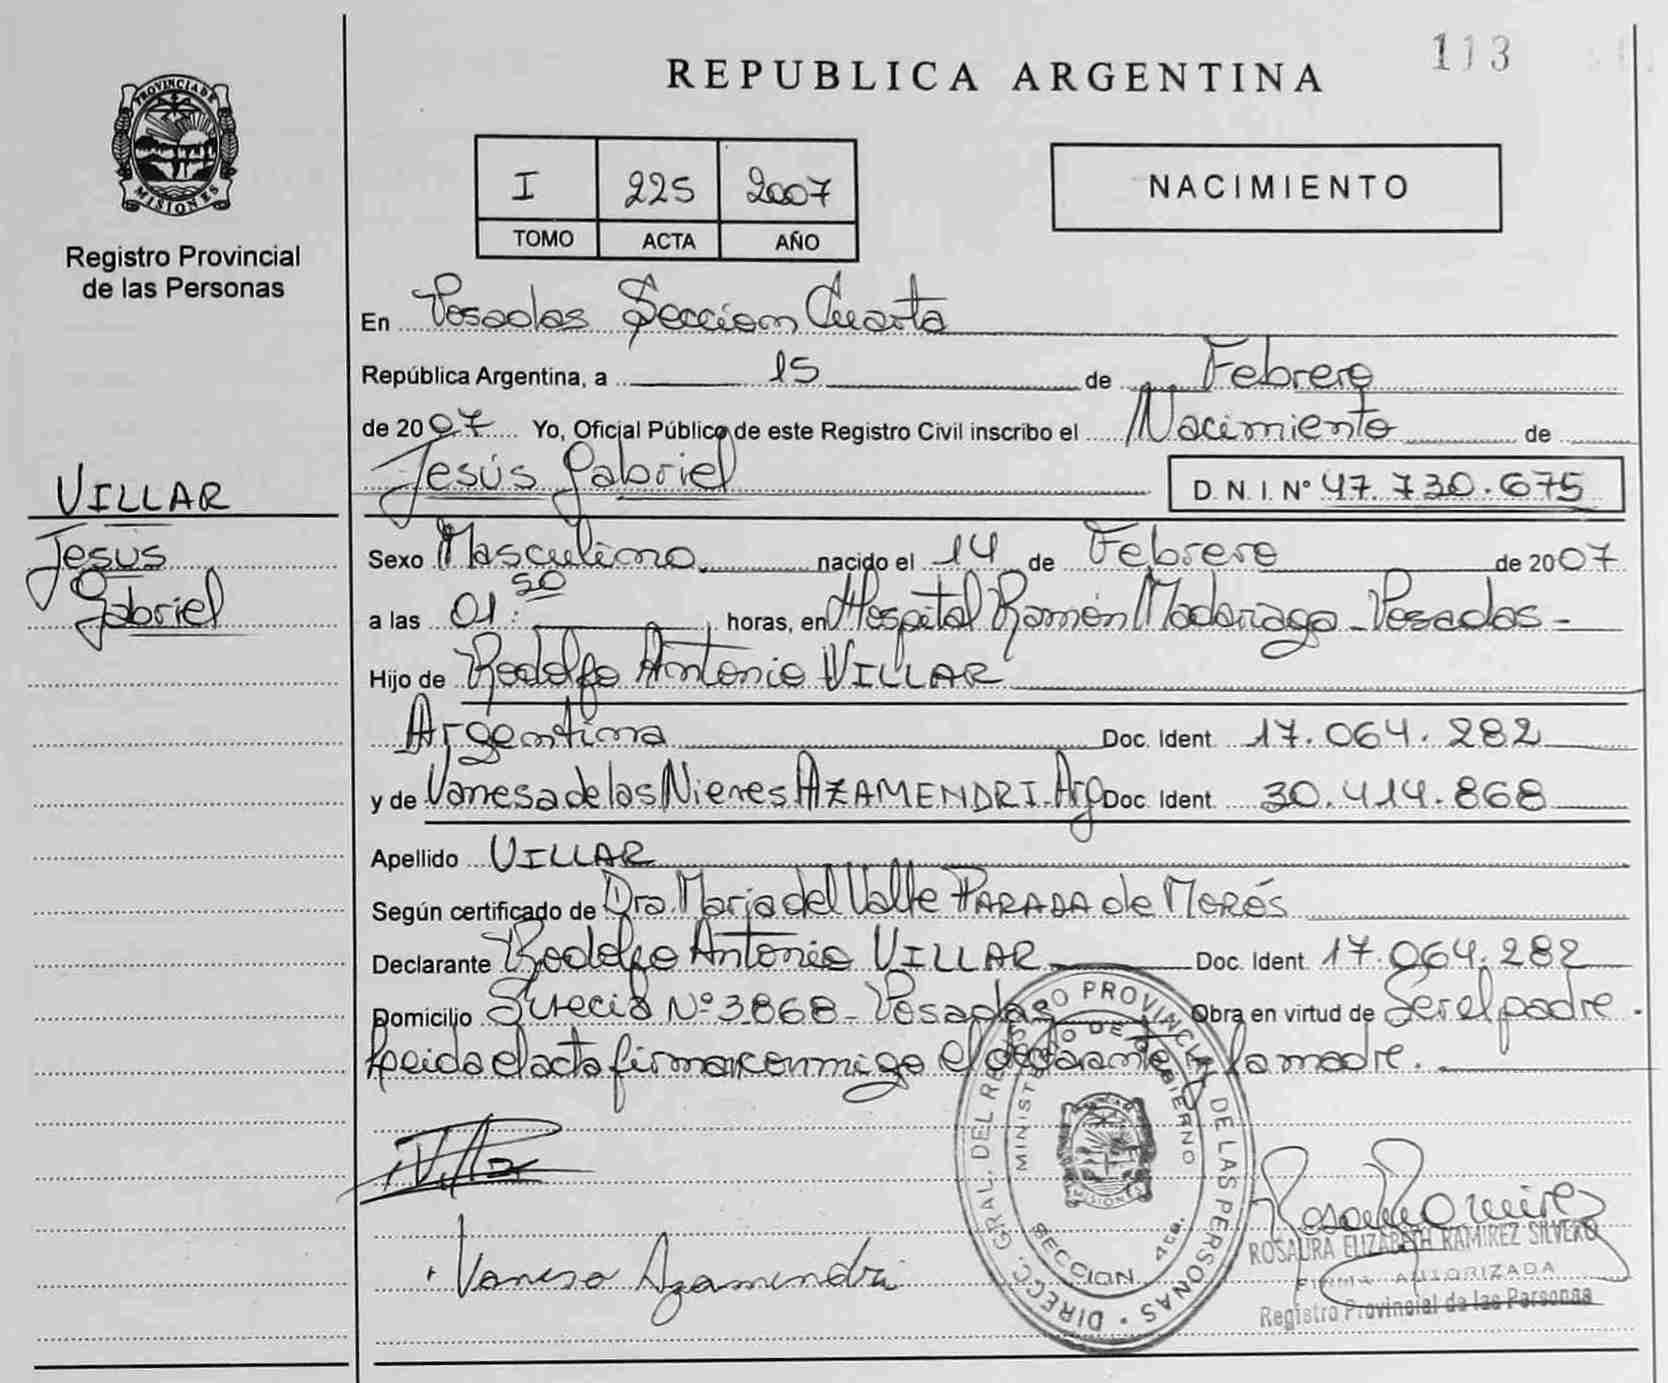 113
REPUBLICA ARGENTINA
PROVINCIA DE
MISIONES
Registro Provincial
de las Personas
I 225 2007
TOMO ACTA AÑO
NACIMIENTO
En Posadas Seccion Cuarta
República Argentina, a 15 de Febrero
de 2007 Yo, Oficial Público de este Registro Civil inscribo el Nacimiento de
Jesús Gabriel D.N.I. Nº 47.730.675
VILLAR
Jesús
Gabriel
Sexo Masculino nacido el 14 de Febrero de 2007
a las 01:50 horas, en Hospital Ramón Madariaga - Posadas -
Hijo de Rodolfo Antonio VILLAR
Argentina Doc. Ident. 17.064.282
y de Vanesa de las Nieves AZAMENDRI. Arg Doc. Ident. 30.414.868
Apellido VILLAR
Según certificado de Dra. Maria del Valle PARADA de MORÉS
Declarante Rodolfo Antonio VILLAR Doc. Ident. 17.064.282
Domicilio Suecia Nº 3868 - Posadas Obra en virtud de Ser el padre.
Leida el acta firman conmigo el declarante y la madre.
DIREC. GRAL. DEL REGISTRO PROVINCIAL DE LAS PERSONAS
MINISTERIO DE GOBIERNO
MISIONES
SECCION 4ta.
Vanesa Azamendri
Rosaura Ramirez
ROSAURA ELIZABETH RAMIREZ SILVERO
FIRMA AUTORIZADA
Registro Provincial de las Personas